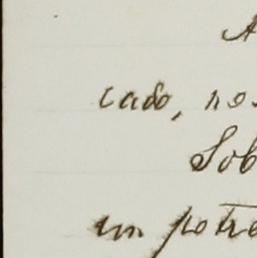 A
cado, nos
Sob
un potre